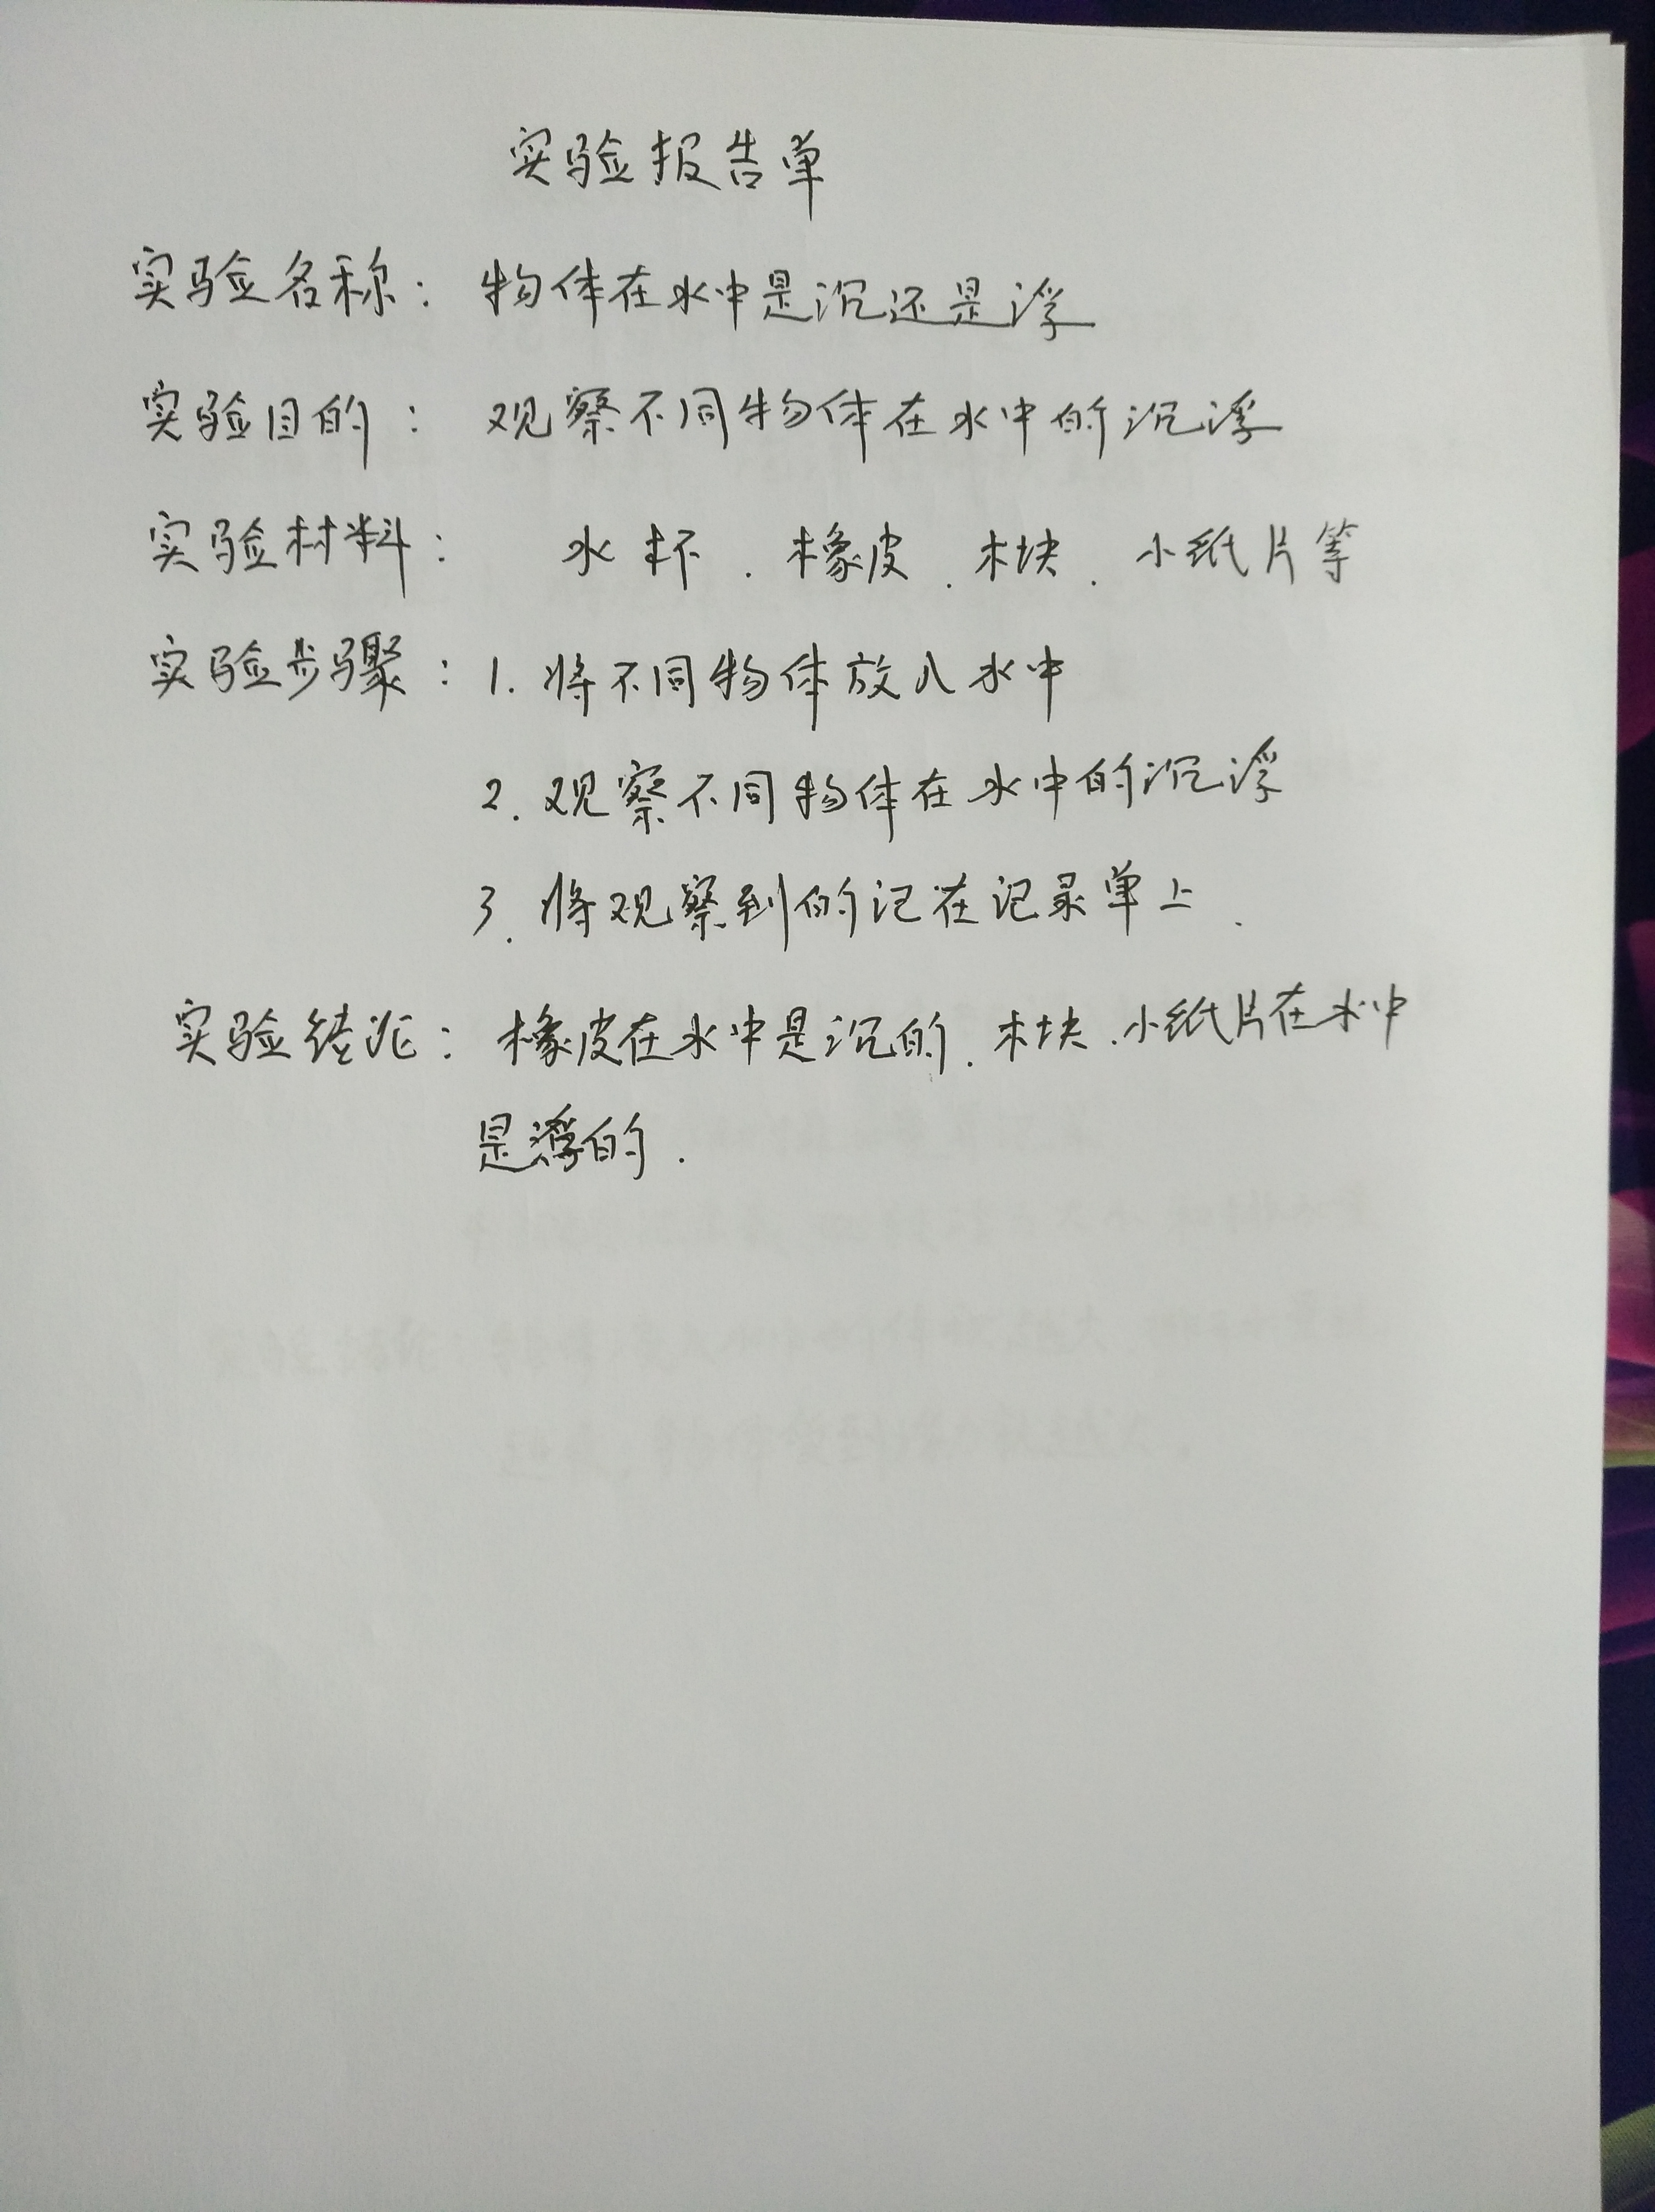 实验报告单
实验名称：物体在水中是沉还是浮
实验目的：观察不同物体在水中的沉浮
实验材料：水杯、橡皮、木块、小纸片等
实验步骤：1.将不同物体放入水中
2.观察不同物体在水中的沉浮
3.将观察到的记在记录单上.
实验结论：橡皮在水中是沉的.木块.小纸片在水中
是浮的.